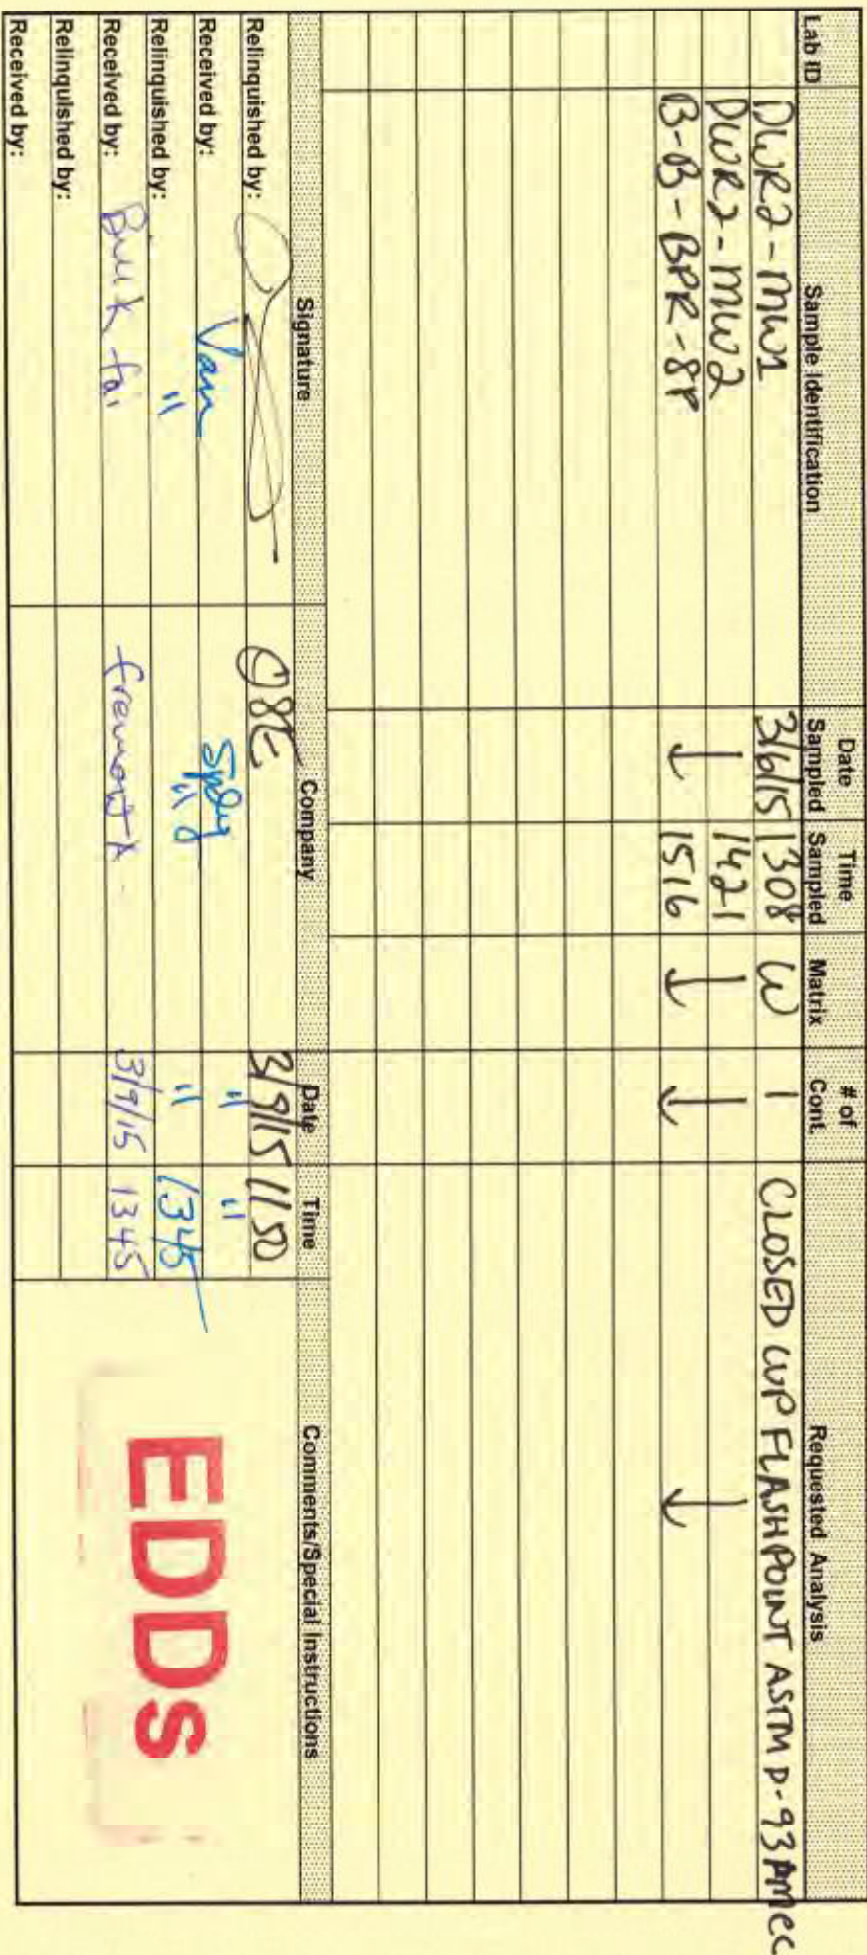 Lab ID Sample Identification Date Sampled Time Sampled Matrix # of Cont. Requested Analysis
DWR2-MW1 3/6/15 1308 W 1 CLOSED CUP FLASHPOINT ASTM D-93 PMCC
DWR2-MW2 | 1421 | | |
B-B-BPR-8P ↓ 1516 ↓ ↓ ↓
Signature Company Date Time Comments/Special Instructions
Relinquished by: 3/9/15 1150
Received by: " "
Relinquished by: " " " 1345
Received by: 3/9/15 1345
Relinquished by:
Received by:
EDDS